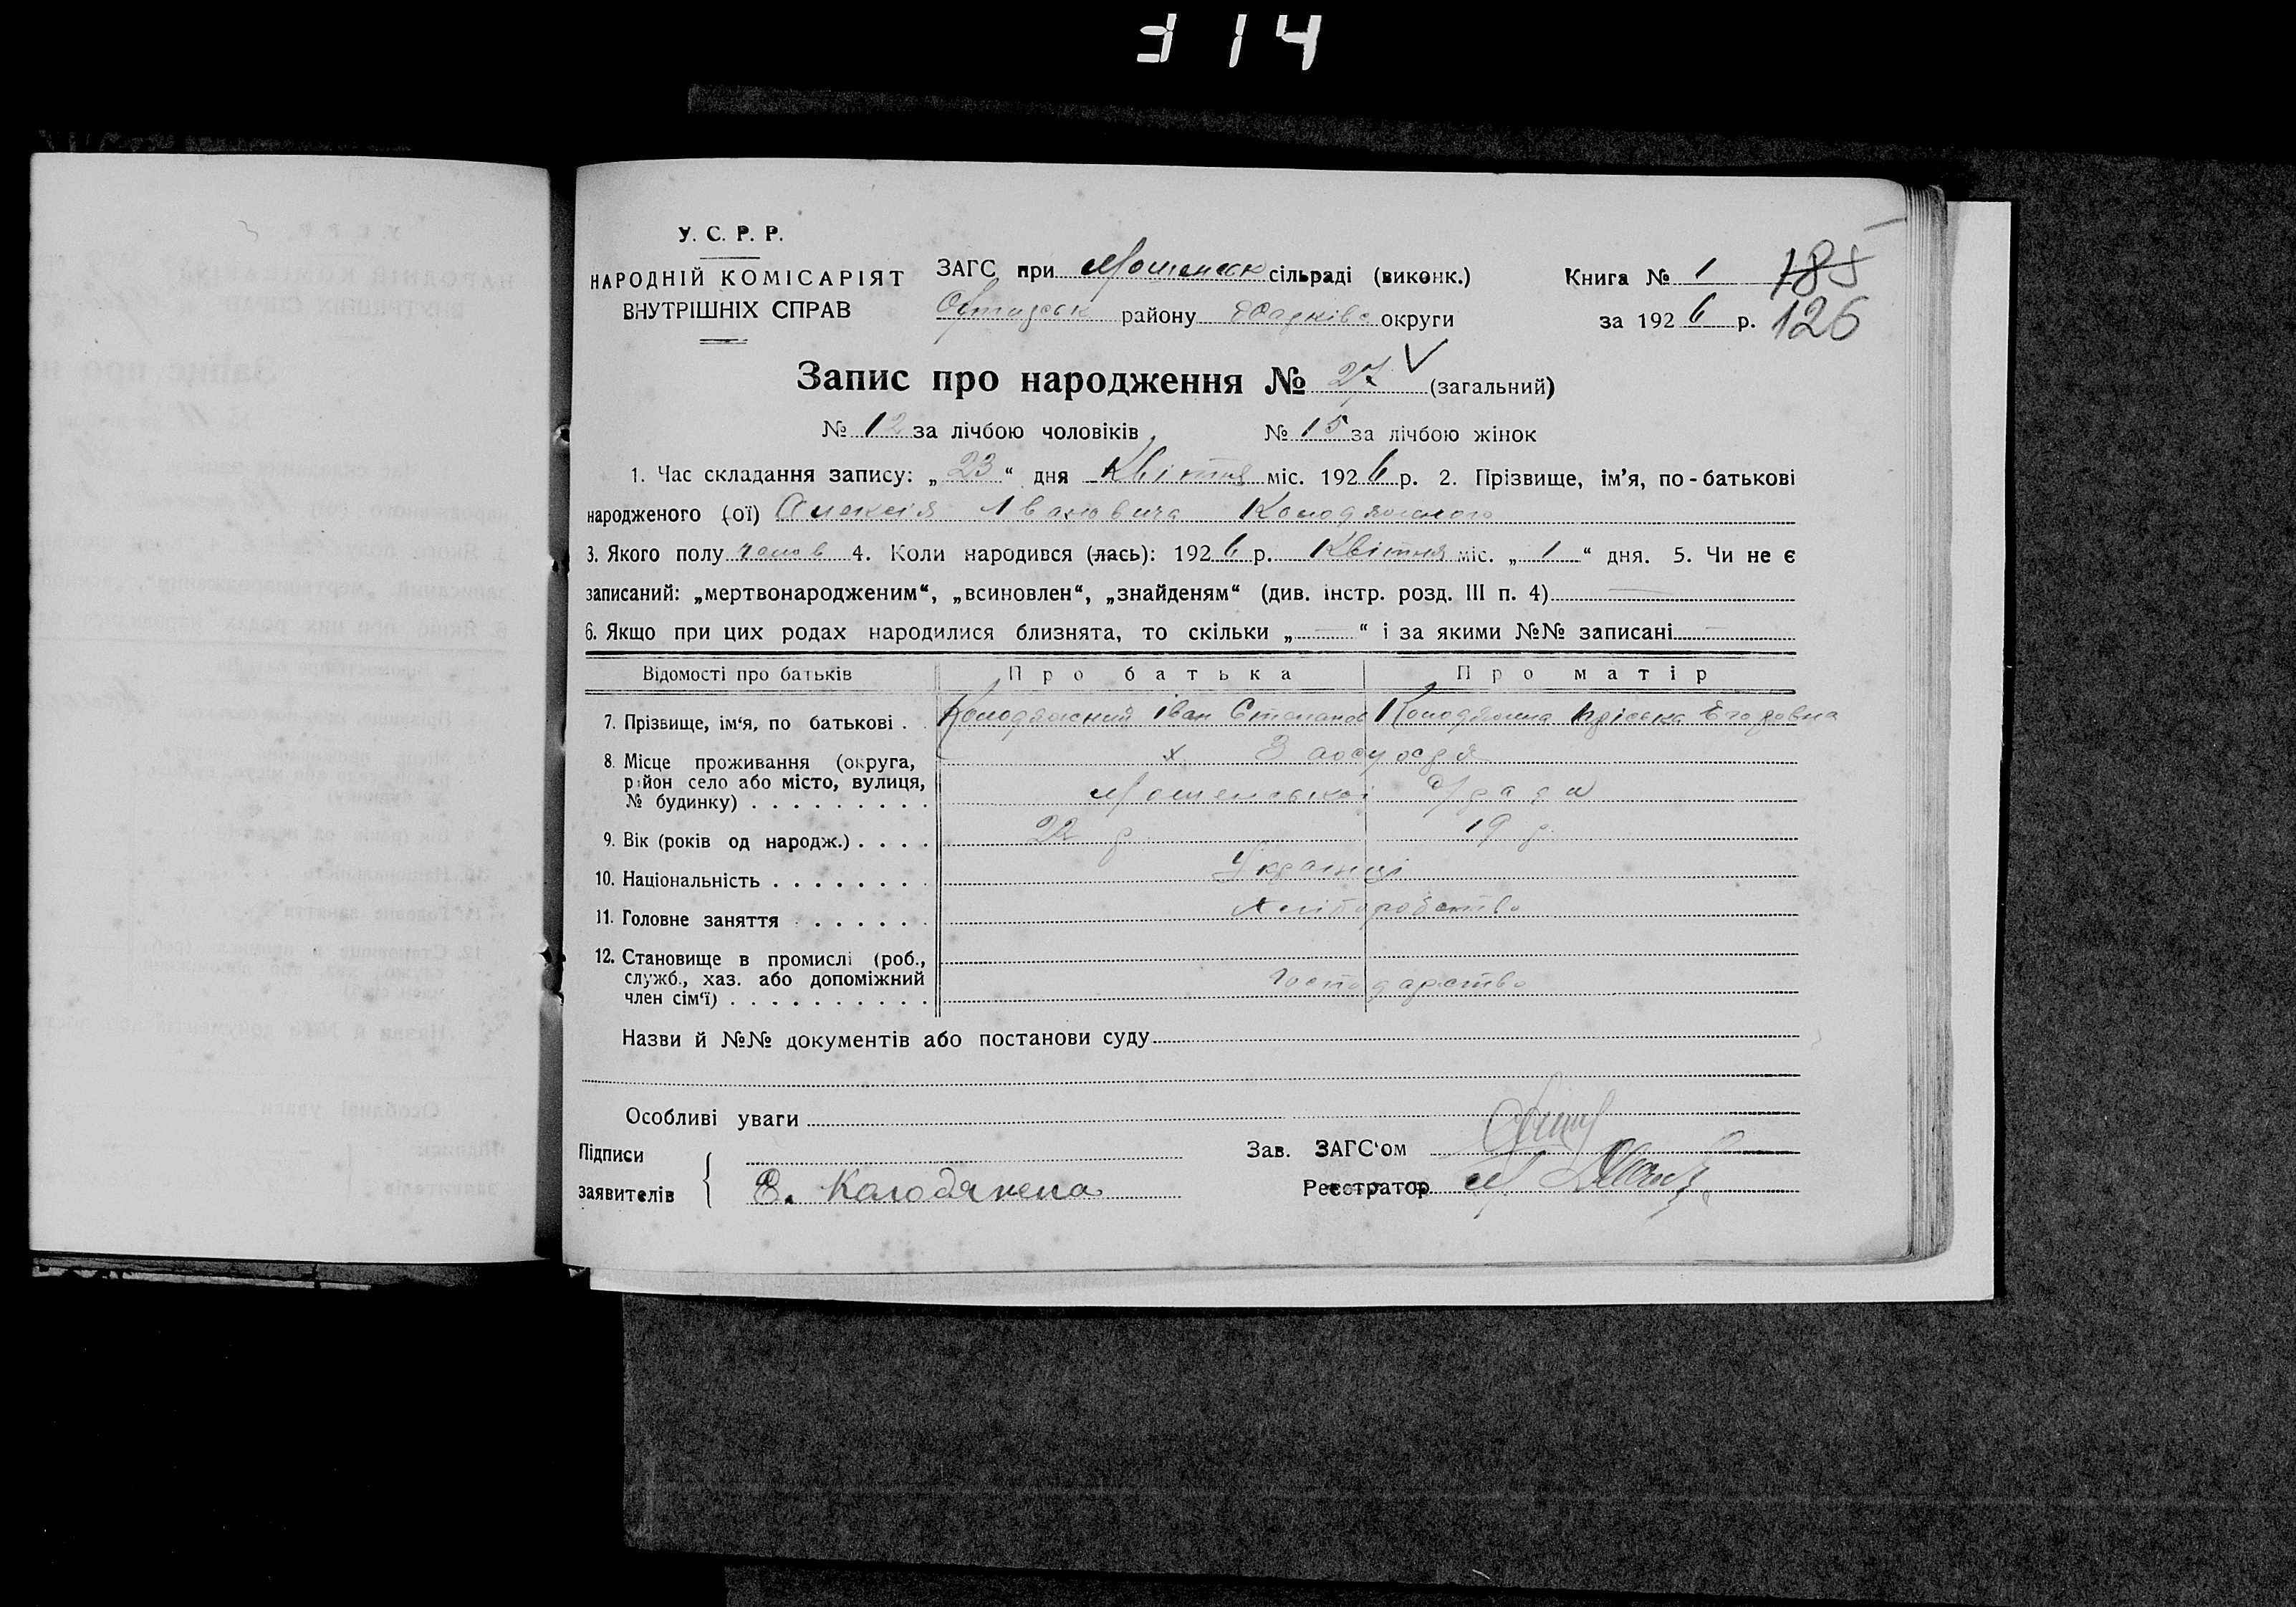 314
У. С. Р. Р.
НАРОДНІЙ КОМІСАРІЯТ
ВНУТРІШНІХ СПРАВ
ЗАГС при Мошенськ сільраді (виконк.)
району Харківс округи
Книга № 1 185
за 1926 р. 126
Запис про народження № 27 (загальний)
№ 12 за лічбою чоловіків № 15 за лічбою жінок
1. Час складання запису: „ 23 “ дня Квітня міс. 1926 р. 2. Прізвище, ім'я, по-батькові
народженого (ої) Алексія Івановича Колодяжного
3. Якого полу чолов 4. Коли народився (лась): 1926 р. Квітня міс. „ 1 “ дня. 5. Чи не є
записаний: „мертвонародженим“, „всиновлен“, „знайденям“ (див. інстр. розд. III п. 4)
6. Якщо при цих родах народилися близнята, то скільки „ — “ і за якими №№ записані —
Відомості про батьків Про батька Про матір
7. Прізвище, ім'я, по батькові . Колодяжний Іван Степанов Колодяжна Егоровна
8. Місце проживання (округа,
район село або місто, вулиця,
№ будинку) . . . . . . . . . Мошенської С/ради
х.
9. Вік (років од народж.) . . . . 22 р. 19 р.
10. Національність . . . . . . . . Українці
11. Головне заняття . . . . . . . Хліборобство
12. Становище в промислі (роб.,
служб., хаз. або допоміжний
член сім'ї) . . . . . . . . . . Господарство
Назви й №№ документів або постанови суду
Особливі уваги
Підписи
заявителів Е. Колодяжна
Зав. ЗАГС'ом
Реєстратор